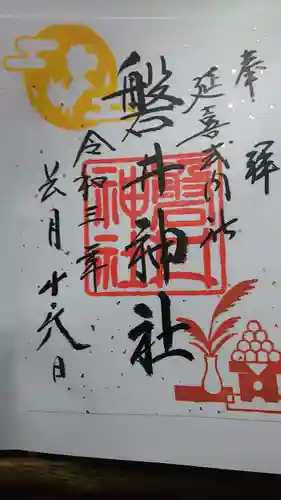 奉拝
延喜式内社
磐井神社
磐井神社
令和三年
長月十八日